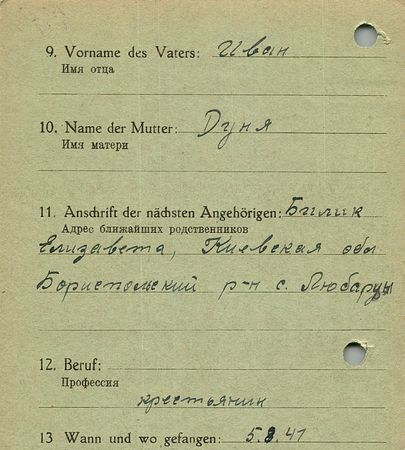 9. Vorname des Vaters: Иван
Имя отца
10. Name der Mutter: Дуня
Имя матери
11. Anschrift der nächsten Angehörigen: Билик
Адрес ближайших родственников
Елизавета, Киевская обл
Бориспольский р-н с. Любарцы
12. Beruf:
Профессия
крестьянин
13 Wann und wo gefangen: 5.8.41